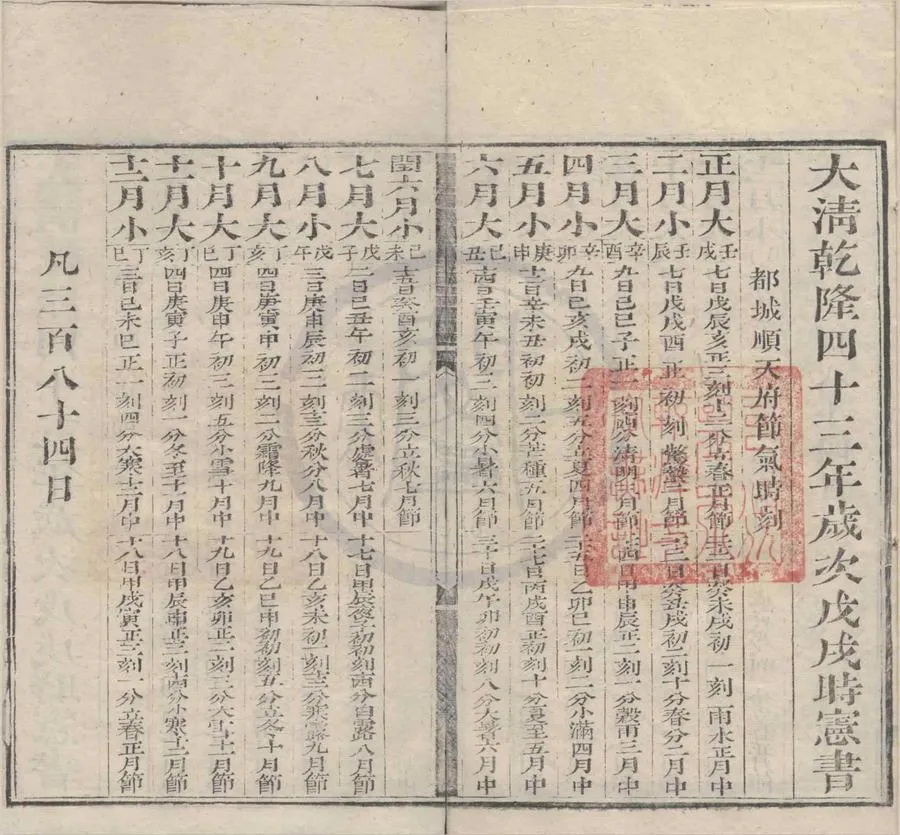 大清乾隆四十三年歲次戊戌時憲書
都城順天府節氣時刻
正月大壬戌七日戊辰亥正三刻十二分立春正月節二十二日癸未戌初一刻雨水正月中
二月小壬辰七日戊戌酉正初刻驚蟄二月節二十二日癸丑戌初二刻十分春分二月中
三月大辛酉九日己巳子正一刻十四分清明三月節二十四日甲申辰正二刻一分穀雨三月中
四月小辛卯九日己亥戌初一刻五分立夏四月節二十五日乙卯巳初一刻二分小滿四月中
五月小庚申十二日辛未丑初初刻二分芒種五月節二十七日丙戌酉正初刻十分夏至五月中
六月大己丑十四日壬寅午初二刻四分小暑六月節三十日戊午卯初初刻八分大暑六月中
閏六月小己未十五日癸酉亥初一刻二分立秋七月節
七月大戊子二日己丑午初二刻三分處暑七月中十七日甲辰夜子初初刻十四分白露八月節
八月小戊午三日庚申辰初二刻十三分秋分八月中十八日乙亥未初一刻十三分寒露九月節
九月大丁亥四日庚寅申初二刻一分霜降九月中十九日乙巳申初初刻五分立冬十月節
十月大丁巳四日庚申午初三刻五分小雪十月中十九日乙亥卯正二刻三分大雪十一月節
十一月大丁亥四日庚寅子正初刻一分冬至十一月中十八日甲辰申正三刻十四分小寒十二月節
十二月小丁巳三日己未巳正一刻四分大寒十二月中十八日甲戌寅正三刻一分立春正月節
凡三百八十四日